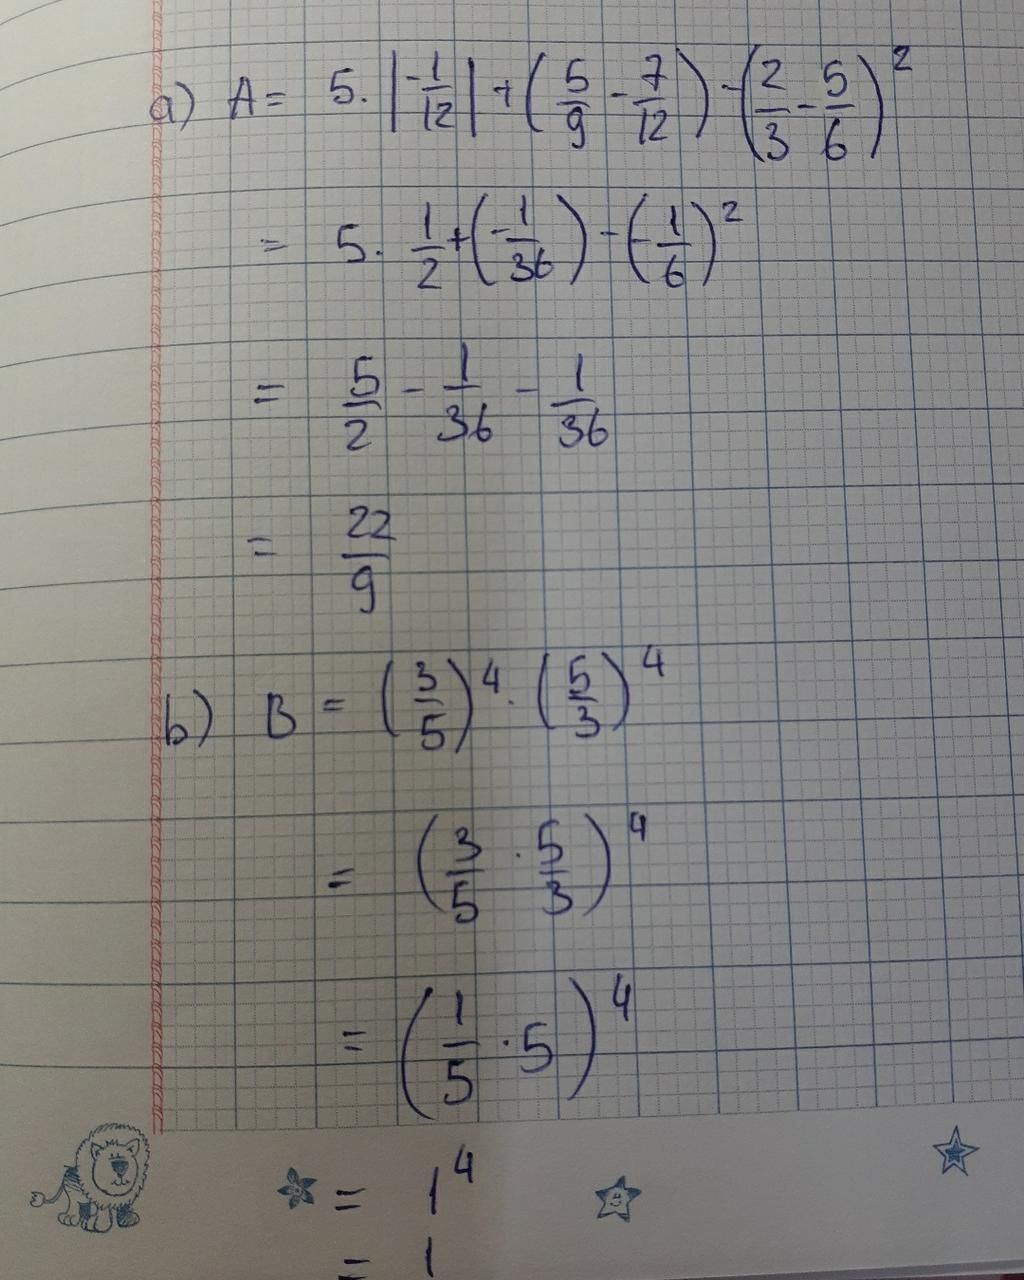 a) A = 5. |-1/12| + (5/9 - 7/12) - (2/3 - 5/6)²
= 5. 1/2 + (-1/36) - (-1/6)²
= 5/2 - 1/36 - 1/36
= 22/9
b) B = (3/5)⁴ . (5/3)⁴
= (3/5 . 5/3)⁴
= (1/5 . 5)⁴
= 1⁴
= 1